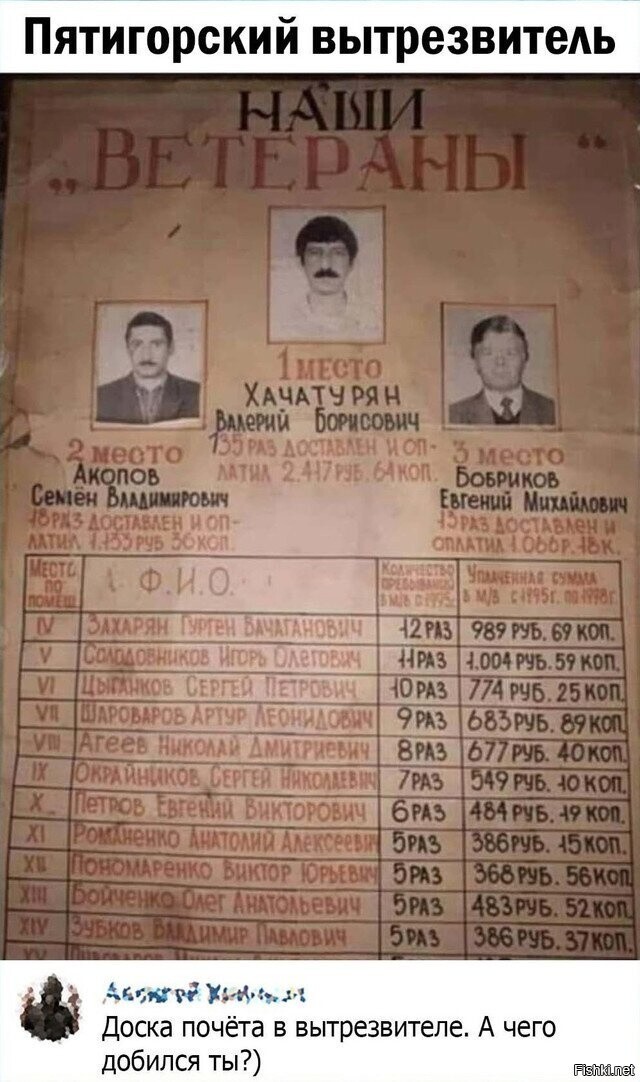 Пятигорский вытрезвитель
НАШИ
„ВЕТЕРАНЫ“
1 МЕСТО
ХАЧАТУРЯН
ВАЛЕРИЙ БОРИСОВИЧ
135 РАЗ ДОСТАВЛЕН И ОП-
ЛАТИЛ 2.417 РУБ. 64 КОП.
2 МЕСТО
АКОПОВ
СЕМЁН ВЛАДИМИРОВИЧ
18 РАЗ ДОСТАВЛЕН И ОП-
ЛАТИЛ 1.153 РУБ 36 КОП.
3 МЕСТО
БОБРИКОВ
ЕВГЕНИЙ МИХАЙЛОВИЧ
13 РАЗ ДОСТАВЛЕН И
ОПЛАТИЛ 1.066 Р. 18 К.
МЕСТО ПО ПОМЕЩ. Ф.И.О. КОЛИЧЕСТВО ПРЕБЫВАНИЙ В М/В С 1995г. УПЛАЧЕННАЯ СУММА В М/В С 1995г. ПО 1998г.
IV ЗАХАРЯН ГУРГЕН ВАЧАГАНОВИЧ 12 РАЗ 989 РУБ. 69 КОП.
V СОЛОДОВНИКОВ ИГОРЬ ОЛЕГОВИЧ 11 РАЗ 1.004 РУБ. 59 КОП.
VI ЦЫГАНКОВ СЕРГЕЙ ПЕТРОВИЧ 10 РАЗ 774 РУБ. 25 КОП.
VII ШАРОВАРОВ АРТУР ЛЕОНИДОВИЧ 9 РАЗ 683 РУБ. 89 КОП.
VIII АГЕЕВ НИКОЛАЙ ДМИТРИЕВИЧ 8 РАЗ 677 РУБ. 40 КОП.
IX ОКРАЙНИКОВ СЕРГЕЙ НИКОЛАЕВИЧ 7 РАЗ 549 РУБ. 10 КОП.
X ПЕТРОВ ЕВГЕНИЙ ВИКТОРОВИЧ 6 РАЗ 484 РУБ. 19 КОП.
XI РОМАНЕНКО АНАТОЛИЙ АЛЕКСЕЕВИЧ 5 РАЗ 386 РУБ. 15 КОП.
XII ПОНОМАРЕНКО ВИКТОР ЮРЬЕВИЧ 5 РАЗ 368 РУБ. 56 КОП.
XIII БОЙЧЕНКО ОЛЕГ АНАТОЛЬЕВИЧ 5 РАЗ 483 РУБ. 52 КОП.
XIV ЗУБКОВ ВЛАДИМИР ПАВЛОВИЧ 5 РАЗ 386 РУБ. 37 КОП.
Доска почёта в вытрезвителе. А чего
добился ты?)
Fishki.net